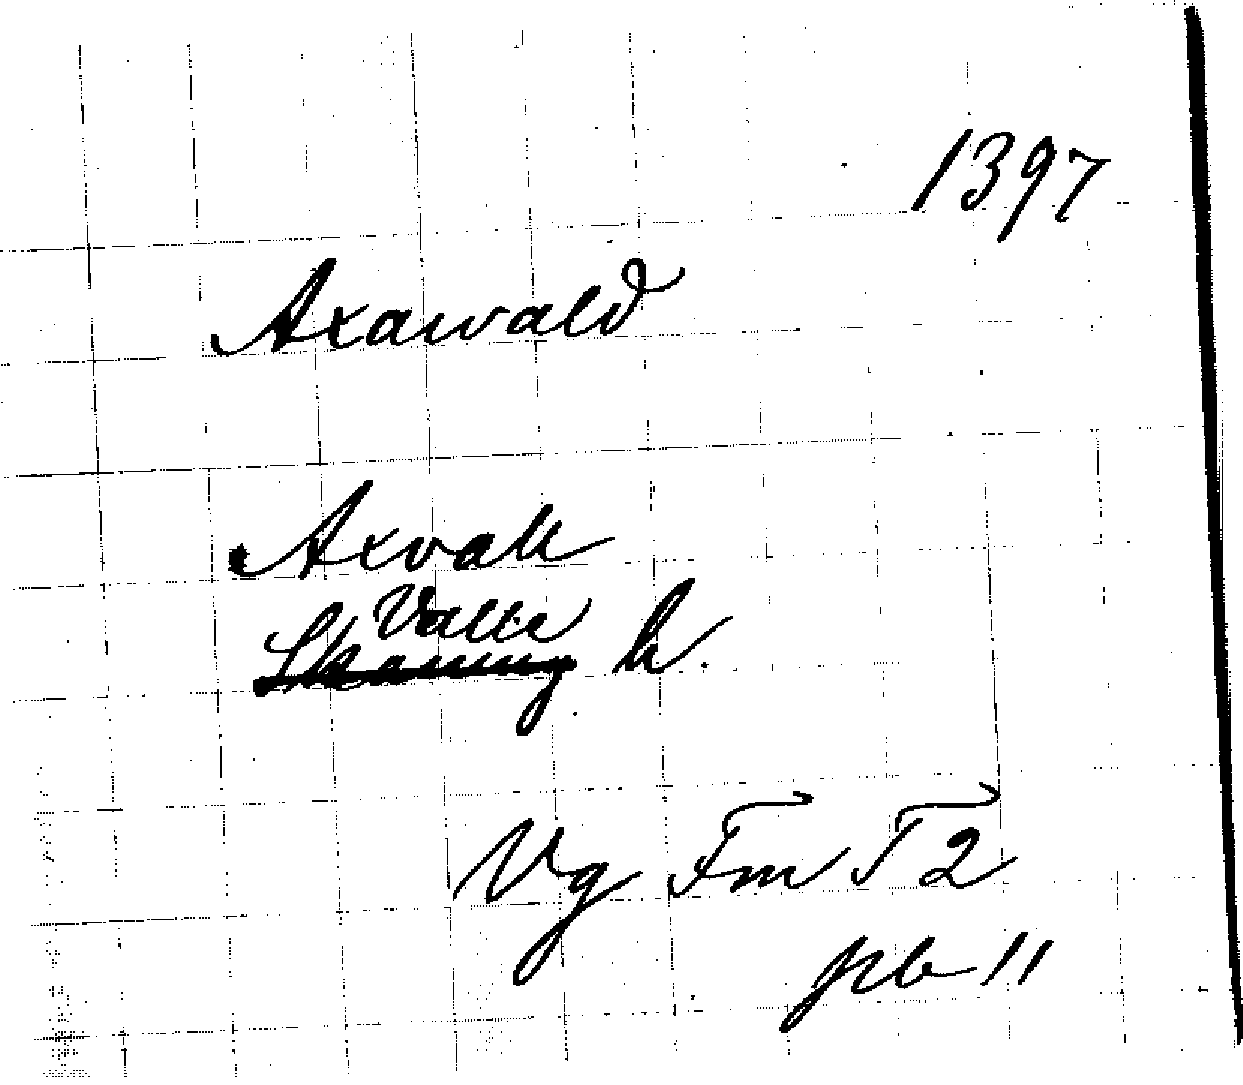 1397
Axawald
Axvall
Valle
Skaning h.
Vg Fm T2
pb 11